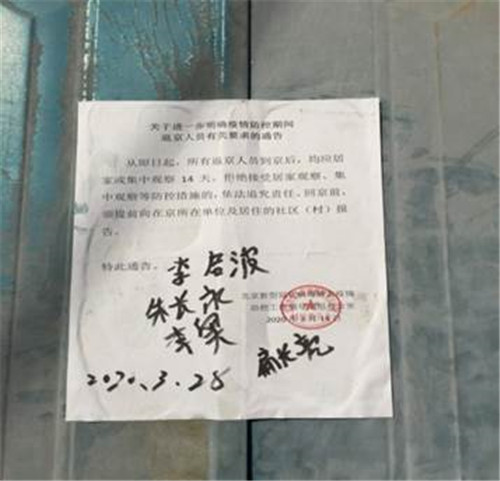 关于进一步明确疫情防控期间
返京人员有关要求的通告
从即日起，所有返京人员到京后，均应居
家或集中观察 14 天。拒绝接受居家观察、集
中观察等防控措施的，依法追究责任。回京前，
须提前向在京所在单位及居住的社区（村）报
告。
特此通告。
李启波
朱长永
北京新型冠状病毒肺炎疫情
防控工作领导小组办公室
2020 年 2 月 14 日
2020.3.28